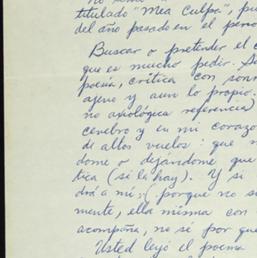 titulado "Mea Culpa", pu
del año pasado en el perió
Buscar o pretender el c
que es mucho pedir. Se
poesía, crítica con son
ajeno y aun lo propio.
no axiológica referencia)
cerebro y en mi corazó
de altos vuelos: que n
dome o dejándome que
tica (si la hay). Y si
drá a mí; (porque no s
mente, ella misma con
acompaña, no sé por que
Usted leyó el poema